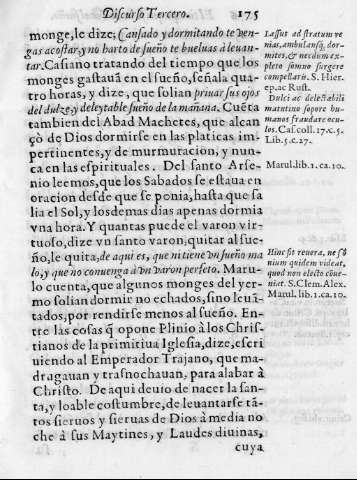 Discurso Tercero. 175
monge, le dize; Cansado y dormitando te ven-
gas acostar, y no harto de sueño te bueluas à leuan-
tar. Casiano tratando del tiempo que los
monges gastauã en el sueño, señala qua-
tro horas, y dize, que solian priuar sus ojos
del dulze, y deleytable sueño de la mañana. Cuẽta
tambien del Abad Machetes, que alcan
çò de Dios dormirse en las platicas im-
pertinentes, y de murmuracion, y nun-
ca en las espirituales. Del santo Arse-
nio leemos, que los Sabados se estaua en
oracion desde que se ponia, hasta que sa
lia el Sol, y los demas dias apenas dormia
vna hora. Y quantas puede el varon vir-
tuoso, dize vn santo varon, quitar al sue-
ño, le quita, de aqui es, que ni tiene vn sueño ma
lo, y que no conuenga à vn varon perfeto. Maru-
lo cuenta, que algunos monges del yer-
mo solian dormir no echados, sino leuã-
tados, por rendirse menos al sueño. En-
tre las cosas q̃ opone Plinio à los Chris-
tianos de la primitiua Iglesia, dize, escri
uiendo al Emperador Trajano, que ma-
drugauan y trasnochauan, para alabar à
Christo. De aqui deuio de nacer la san-
ta, y loable costumbre, de leuantarse tã-
tos sieruos y sieruas de Dios à media no
che à sus Maytines, y Laudes diuinas,
cuya
Lassus ad stratum ve
nias, ambulansq; dor-
mites, & necdum ex-
pleto somno surgere
compellaris. S. Hier-
ep. ac Rust.
Dulci ac delectabili
matutino sopore hu-
manos fraudare ocu-
los. Cas. coll. 17. c. 5.
Lib. 5. c. 27.
Marul. lib. 1. ca. 10.
Hinc fit revera, ne so
nium quidem videat,
quod non electo côue-
niat. S. Clem. Alex.
Marul. lib. 1. ca. 10.